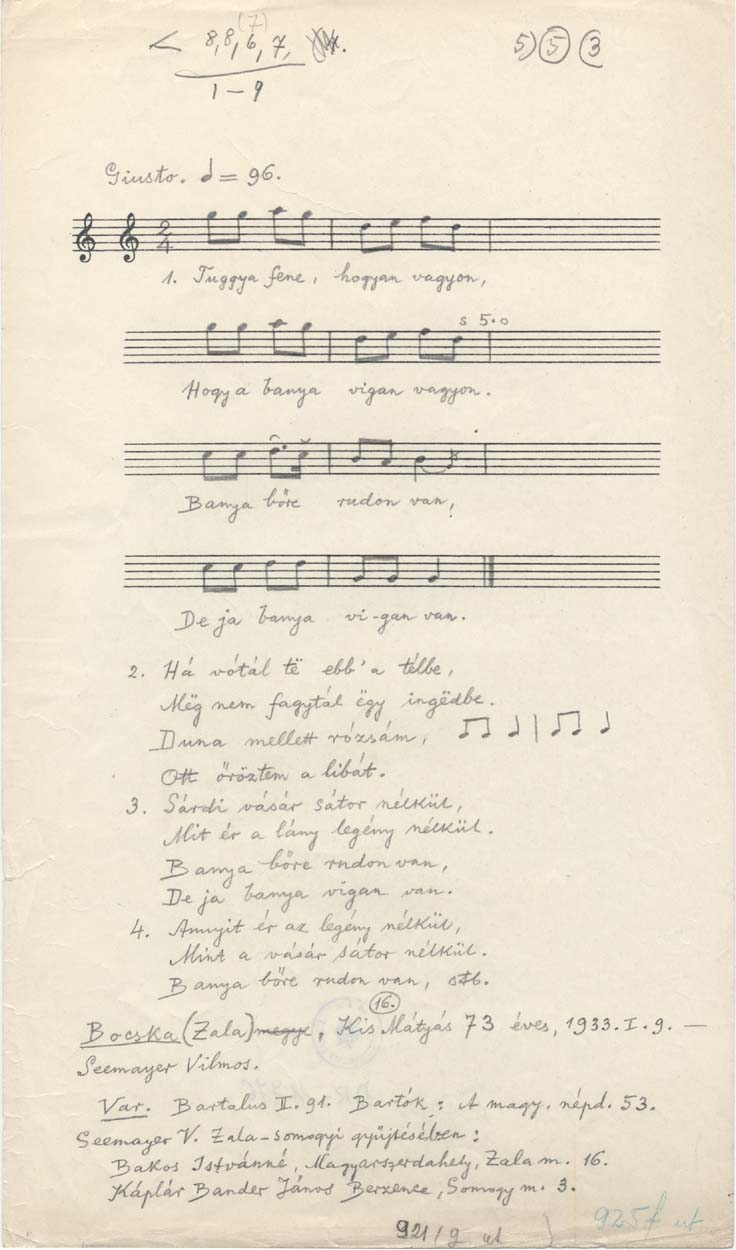 (7)
< 8, 8, 6, 7,
5) 5 3
1-9
Giusto. = 96.
2
4
1. Tuggya fene, hogyan vagyon,
s 5.o
Hogy a banya vigan vagyon.
Banya bőre rudon van,
De ja banya vi-gan van.
2. Há vótál të ebb'a télbe,
Mëg nem fagytál ëgy ingëdbe.
Duna mellett rózsám,
Ott őröztem a libát.
3. Sárdi vásár sátor nélkül,
Mit ér a lány legény nélkül.
Banya bőre rudon van,
De ja banya vigan van.
4. Annyit ér az legény nélkül,
Mint a vásár sátor nélkül.
Banya bőre rudon van, stb.
16.
Bocska (Zala) megye, Kis Mátyás 73 éves, 1933. I. 9. —
Seemayer Vilmos.
Var. Bartalus II. 91. Bartók: A magy. népd. 53.
Seemayer V. Zala-somogyi gyűjtésében:
Bakos Istvánné, Magyarszerdahely, Zala m. 16.
Káplár Bander János Berzence, Somogy m. 3.
921/2 ut
925f ut